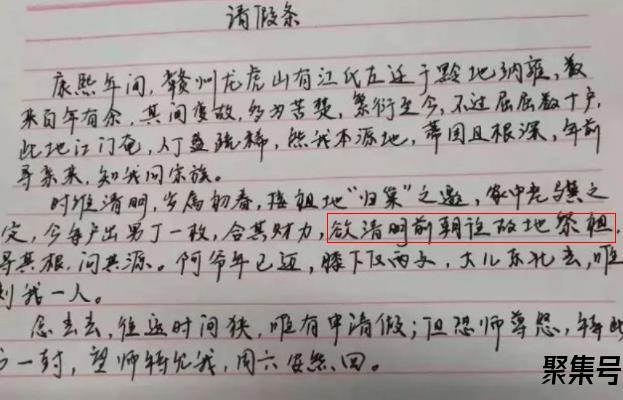 请假条
康熙年间，赣州龙虎山有江氏左迁于黔地纳雍，数
来百年有余，其间变故，多为苦楚，繁衍至今，不过屈屈数十户，
此地江门奄，人丁益疏稀，然我本源地，蒂固且根深，年前
寻亲来，知我同宗族。
时维清明，岁属初春，接祖地“归巢”之邀，家中老
定，今每户出男丁一枚，合其财力，欲清明前朝往故地祭祖，
寻其根，问其源。阿爷年已迈，膝下仅两女，大儿东北去，唯
剩我一人。
念去去，往返时间狭，唯有申请假；但恐师尊怒，特此
一封，望师特允我，周六安然回。
聚集号